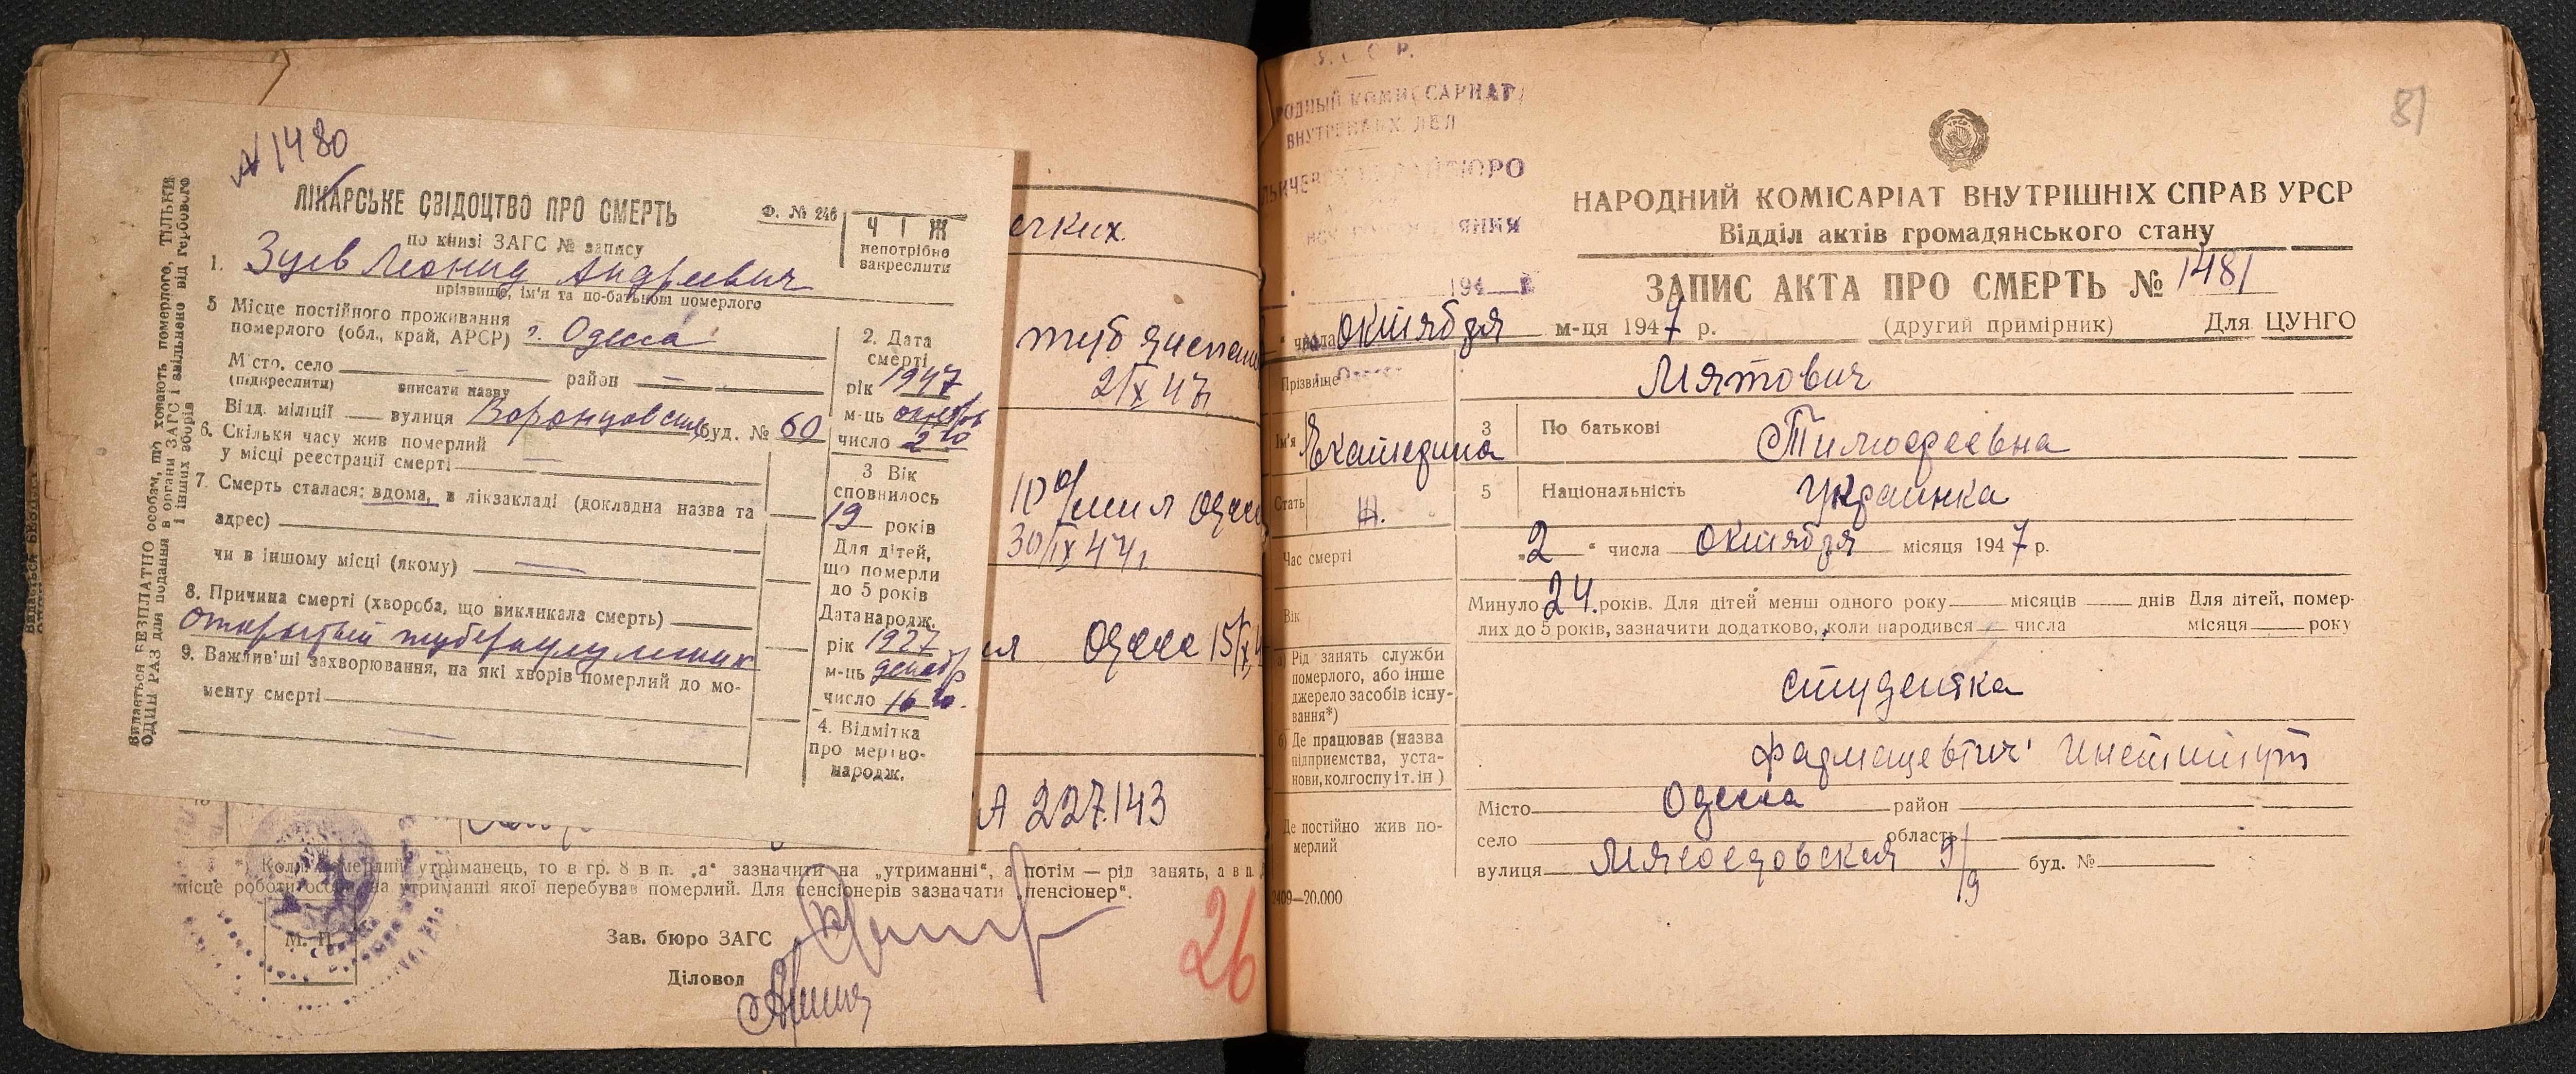 № 1480
ЛІКАРСЬКЕ СВІДОЦТВО ПРО СМЕРТЬ
Ф. № 246
Ч І Ж
непотрібне
закреслити
по книзі ЗАГС № запису
1. Зуев Леонид Андреевич
прізвище, ім'я та по-батькові померлого
5 Місце постійного проживання
померлого (обл., край, АРСР) г. Одесса
Місто, село — район —
(підкреслити) вписати назву
Відд. міліції — вулиця Воронцовский буд. № 60
6. Скільки часу жив померлий
у місці реєстрації смерті —
7. Смерть сталася: вдома, в лікзакладі (докладна назва та
адрес)
чи в іншому місці (якому) —
8. Причина смерті (хвороба, що викликала смерть)
открытый туберкулез
9. Важливіші захворювання, на які хворів померлий до мо-
менту смерті
—
2. Дата
смерті
рік 1947
м-ць октябрь
число 2го
3 Вік
сповнилось
19 років
Для дітей,
що померли
до 5 років
Дата народж.
рік 1927
м-ць декабр
число 16го.
4. Відмітка
про мертво-
народж.
Видається БЕЗПЛАТНО особам, що ховають померлого, ТІЛЬКИ
ОДИН РАЗ для подання в органи ЗАГС і звільнено від гербового
і інших зборів
легких.
туб диспан
2/X 47г
10 о/мил Одес
30/IX 44г
Одесса 15/X 4
А 227143
*) Коли померлий утриманець, то в гр. 8 в п. „а“ зазначити на „утриманні“, а потім — рід занять, а в п.
місце роботи особи на утриманні якої перебував померлий. Для пенсіонерів зазначати „пенсіонер“.
М. П.
Зав. бюро ЗАГС
Діловод
26
У. С. С. Р.
РОДНЫЙ КОМИССАРИАТ
ВНУТРЕННЫХ ДЕЛ
ЛЬИЧЕВСК РАЙБЮРО
ЯНИЯ
194 г.
81
НАРОДНИЙ КОМІСАРІАТ ВНУТРІШНІХ СПРАВ УРСР
Відділ актів громадянського стану
ЗАПИС АКТА ПРО СМЕРТЬ № 1481
“ числа октября м-ця 1947 р. (другий примірник) Для ЦУНГО
Прізвище Мятович
Ім'я Екатерина 3 По батькові Тимофеевна
Стать Ж. 5 Національність Украинка
Час смерті „2“ числа октября місяця 1947 р.
Вік Минуло 24 років. Для дітей менш одного року — місяців — днів Для дітей, помер-
лих до 5 років, зазначити додатково, коли народився — числа місяця — року
а) Рід занять служби
померлого, або інше
джерело засобів існу-
вання*)
студентка
б) Де працював (назва
підприємства, уста-
нови, колгоспу і т. ін)
фармацевтич' институт
Де постійно жив по-
мерлий
Місто Одесса район
село область
вулиця Мясоедовская 9/9 буд. №
2409—20.000